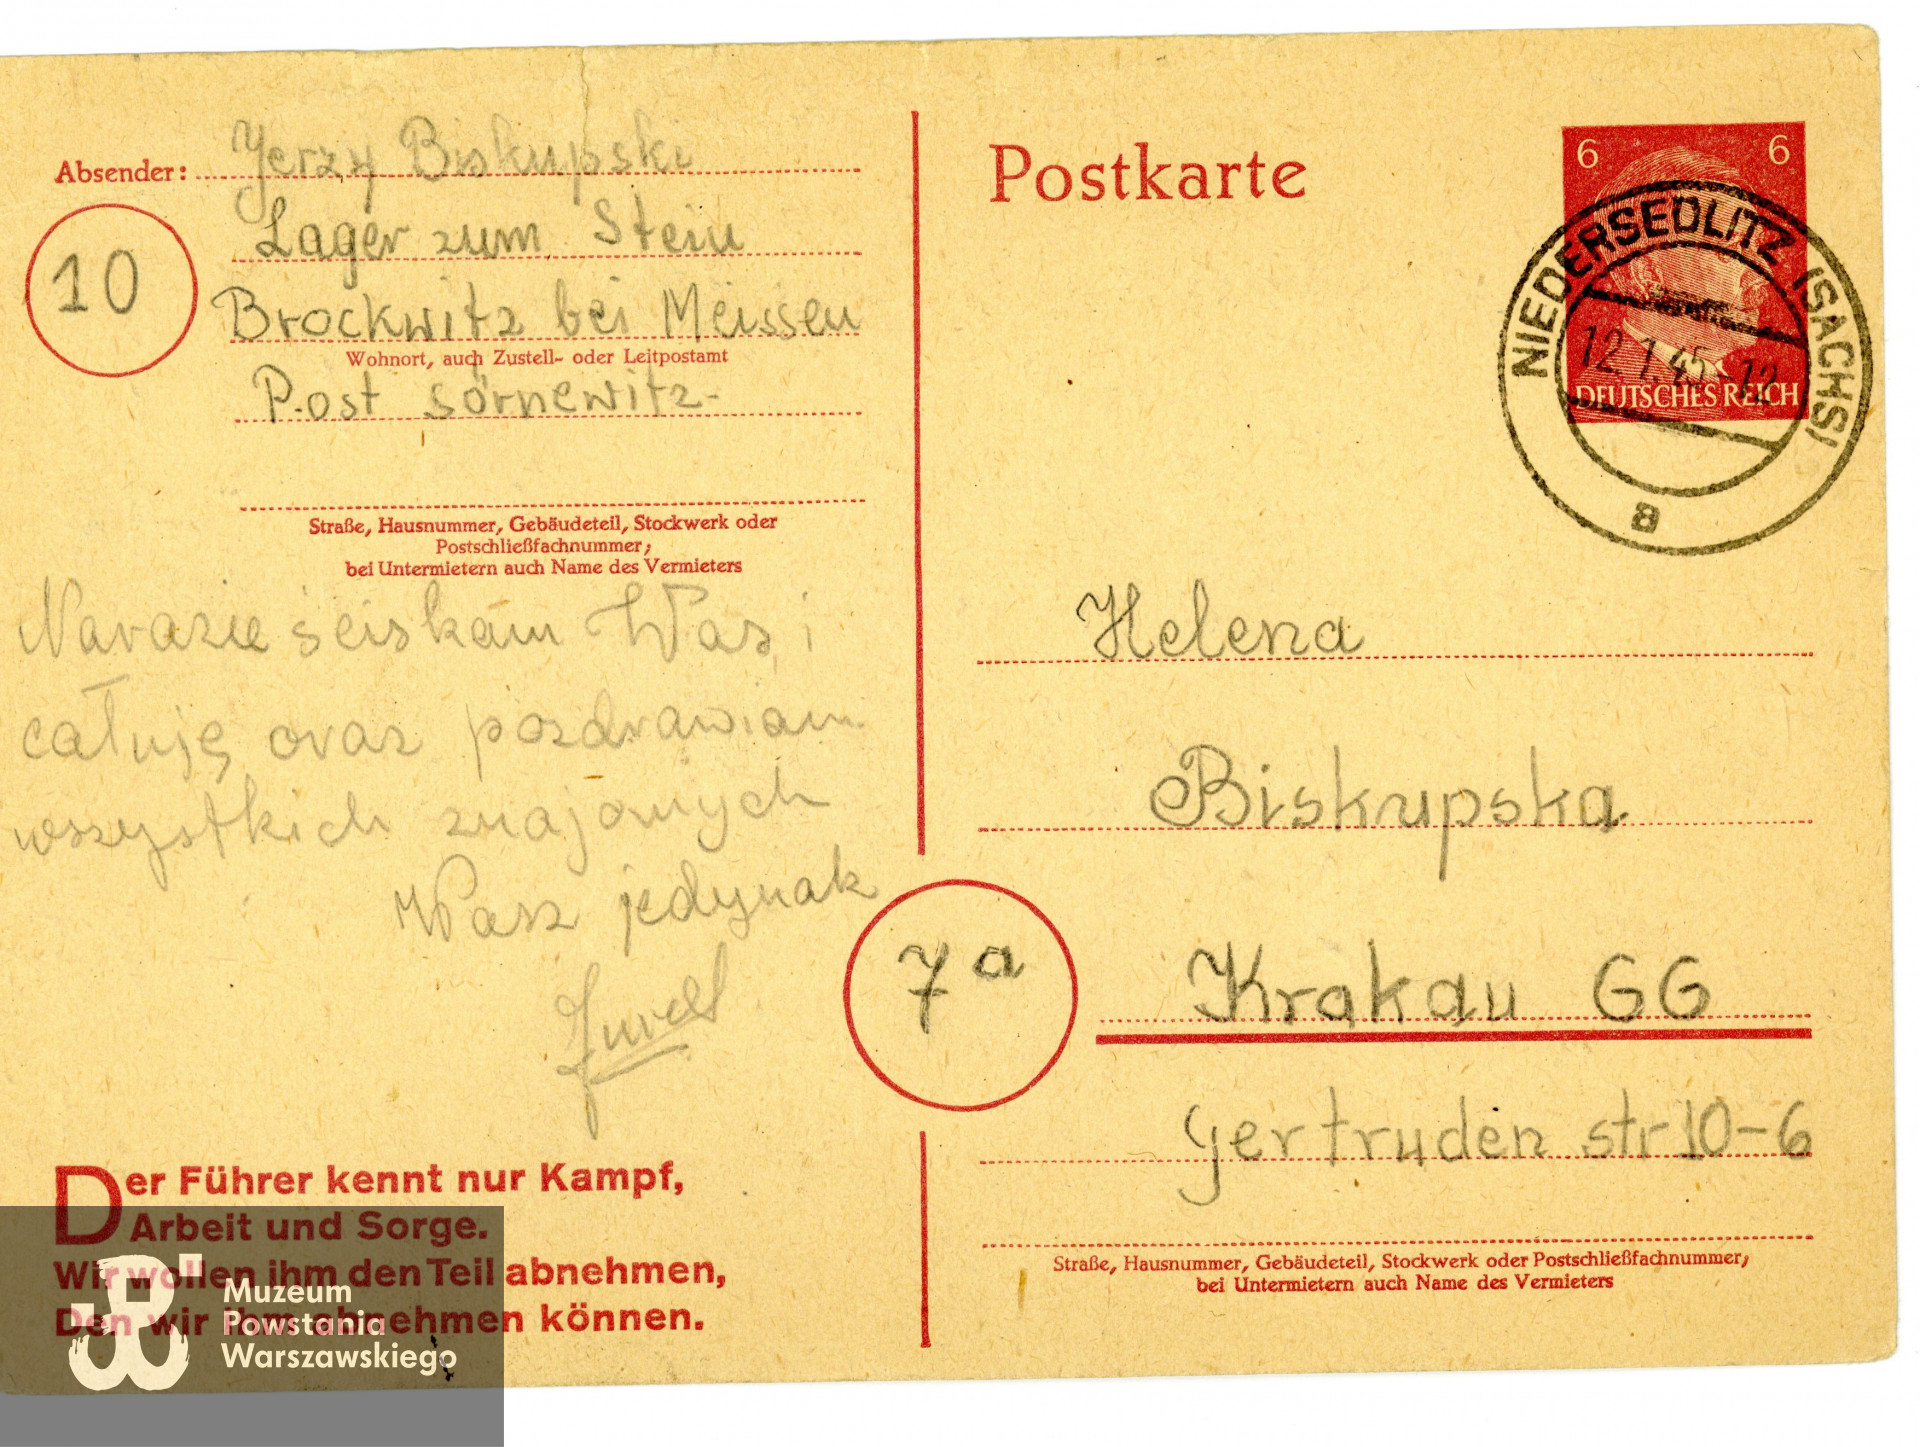 Absender: Jerzy Biskupski
Lager zum Stein
10
Brockwitz bei Meissen
Wohnort, auch Zustell- oder Leitpostamt
Post Sörnewitz-
Straße, Hausnummer, Gebäudeteil, Stockwerk oder
Postschließfachnummer;
bei Untermietern auch Name des Vermieters
Narazie ściskam Was i
całuję oraz pozdrawiam
wszystkich znajomych
Wasz jedynak
Der Führer kennt nur Kampf,
Arbeit und Sorge.
Wir wollen ihm den Teil abnehmen,
Den wir ihm abnehmen können.
Postkarte
6 6
DEUTSCHES REICH
NIEDERSEDLITZ (SACHS)
12.1.45-12
a
Helena
Biskupska
7a
Krakau GG
Gertruden str 10-6
Straße, Hausnummer, Gebäudeteil, Stockwerk oder Postschließfachnummer;
bei Untermietern auch Name des Vermieters
Muzeum
Powstania
Warszawskiego